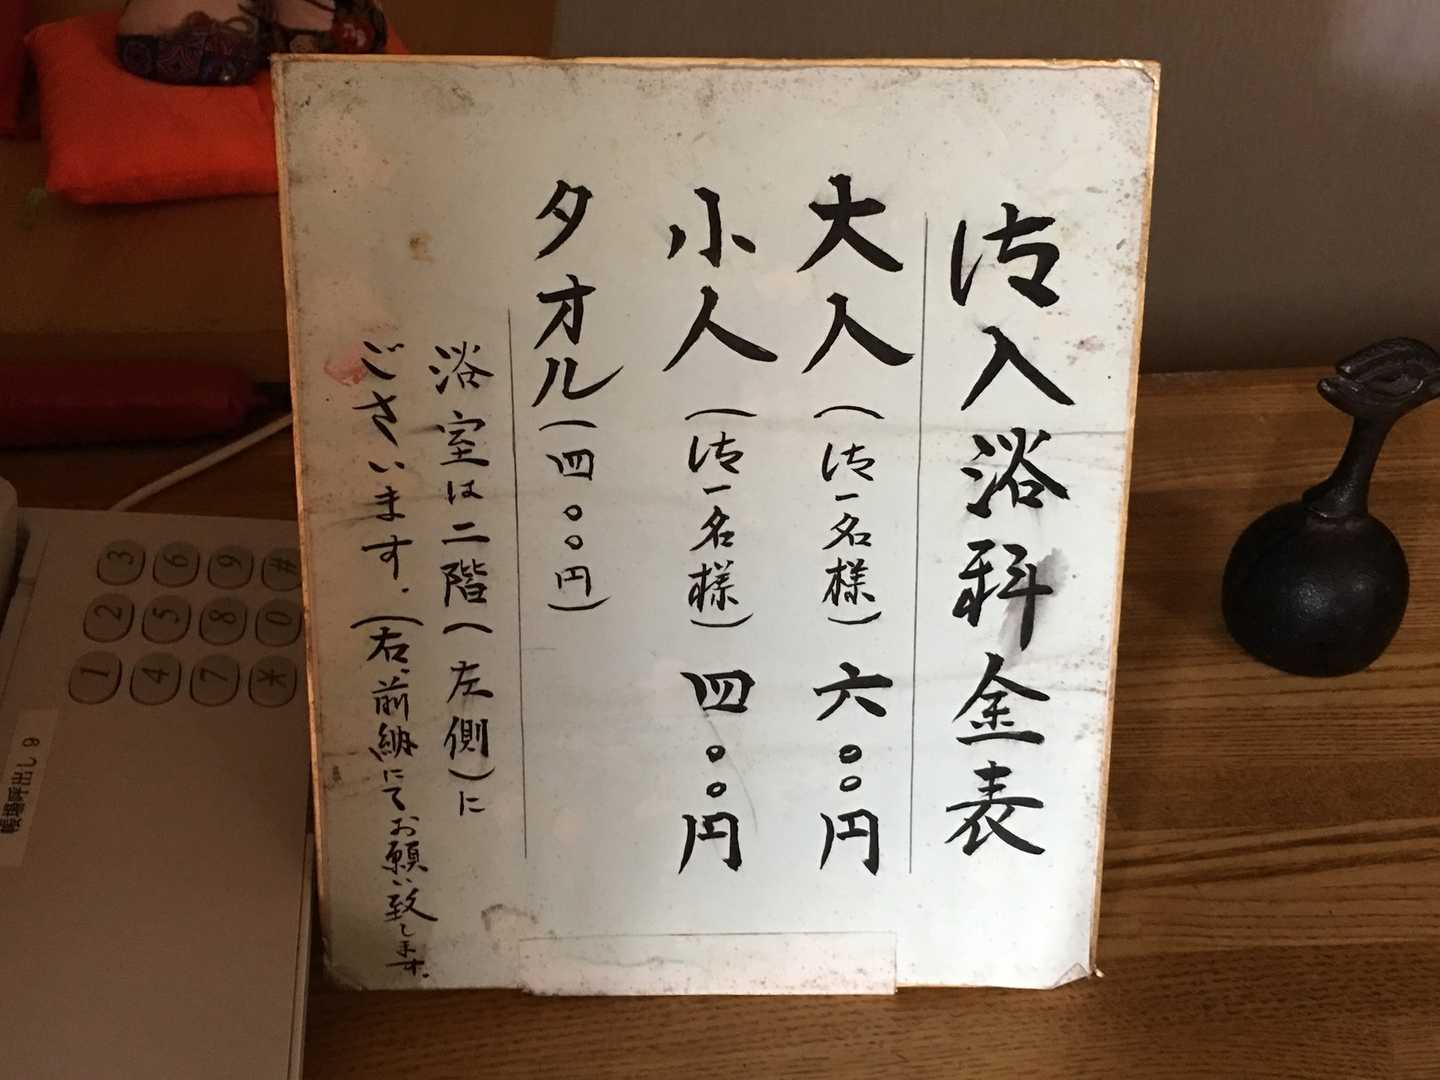 御入浴料金表
大人(御一名様)六〇〇円
小人(御一名様)四〇〇円
タオル(四〇〇円)
浴室は二階(左側)に
ございます。(右、前納にてお願い致します。
3 6 9 #
2 5 8 0
1 4 7 *
帳場呼出し 9